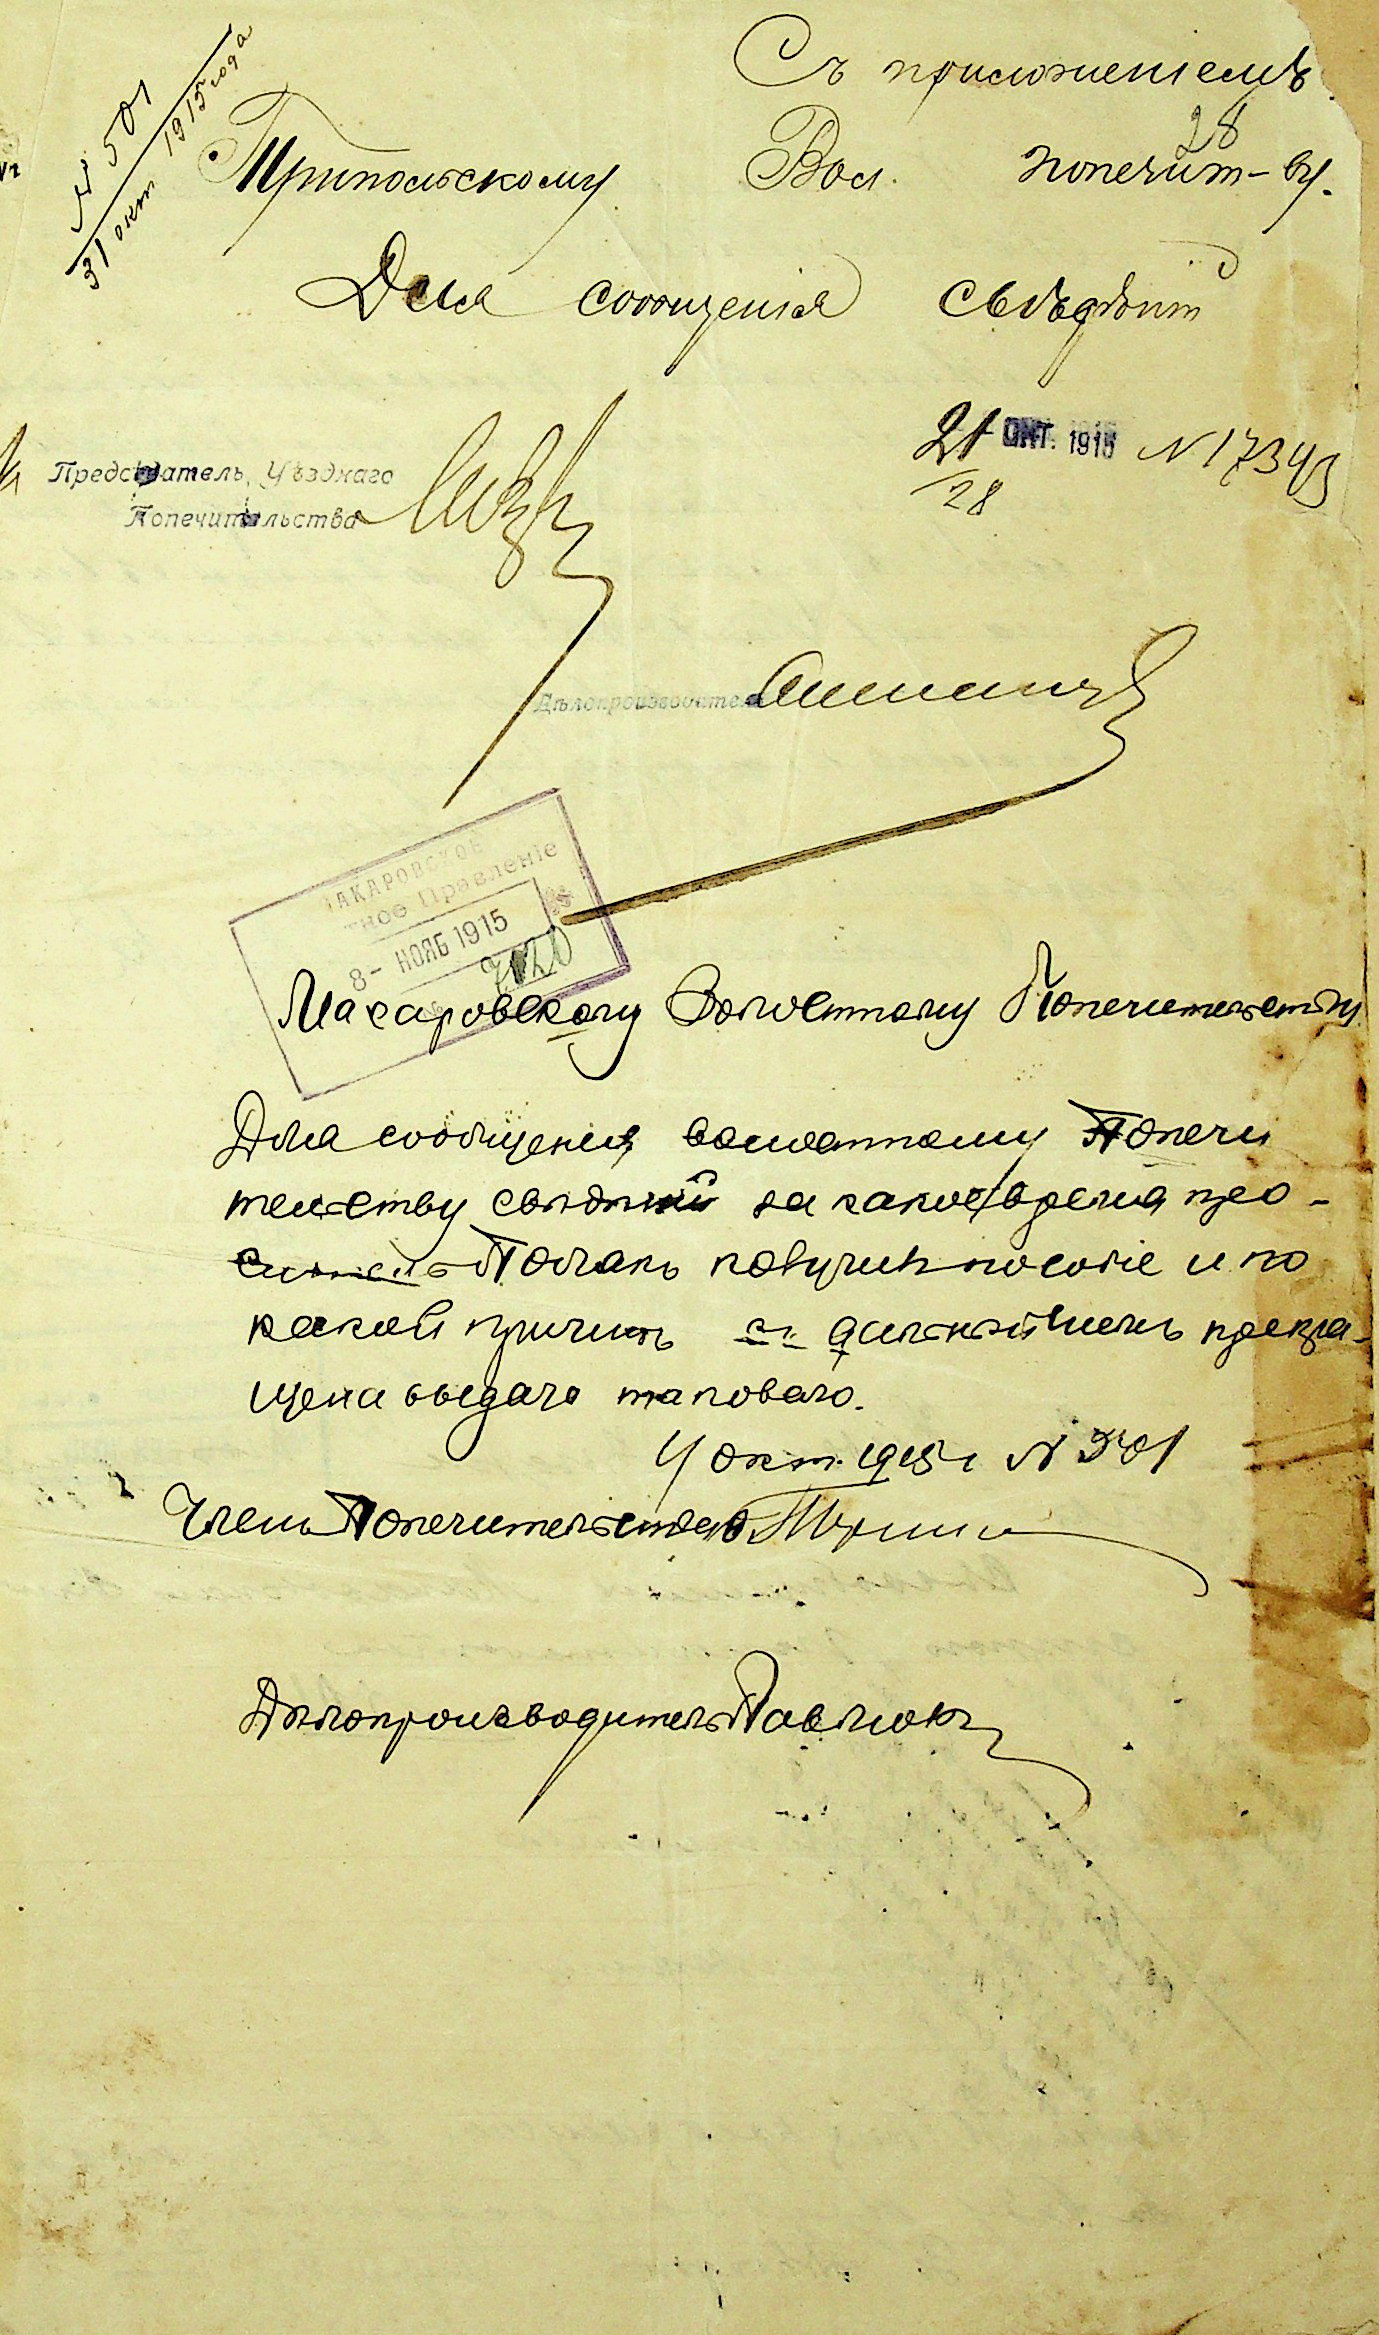 Съ приложеніемъ.
28
N 501
31 окт 1915 года
Трипольскому Вол. попечит-ву.
Для сообщенія свѣдѣній
21 ОКТ. 1915 N 17343
28
Предсѣдатель, Уѣзднаго
Попечительства
Дѣлопроизводитель
МАКАРОВСКОЕ
Правленіе
8- НОЯБ 1915
Макаровскому Волостному Попечительству
Для сообщенія волостному Попечи
тельству свѣдѣній за какое время про-
получ пособіе и по
какой причинѣ дальнѣйшемъ прекра-
щена выдача таковаго.
окт. 1915 г N 501
Членъ Попечительства
Дѣлопроизводитель Павлюкъ